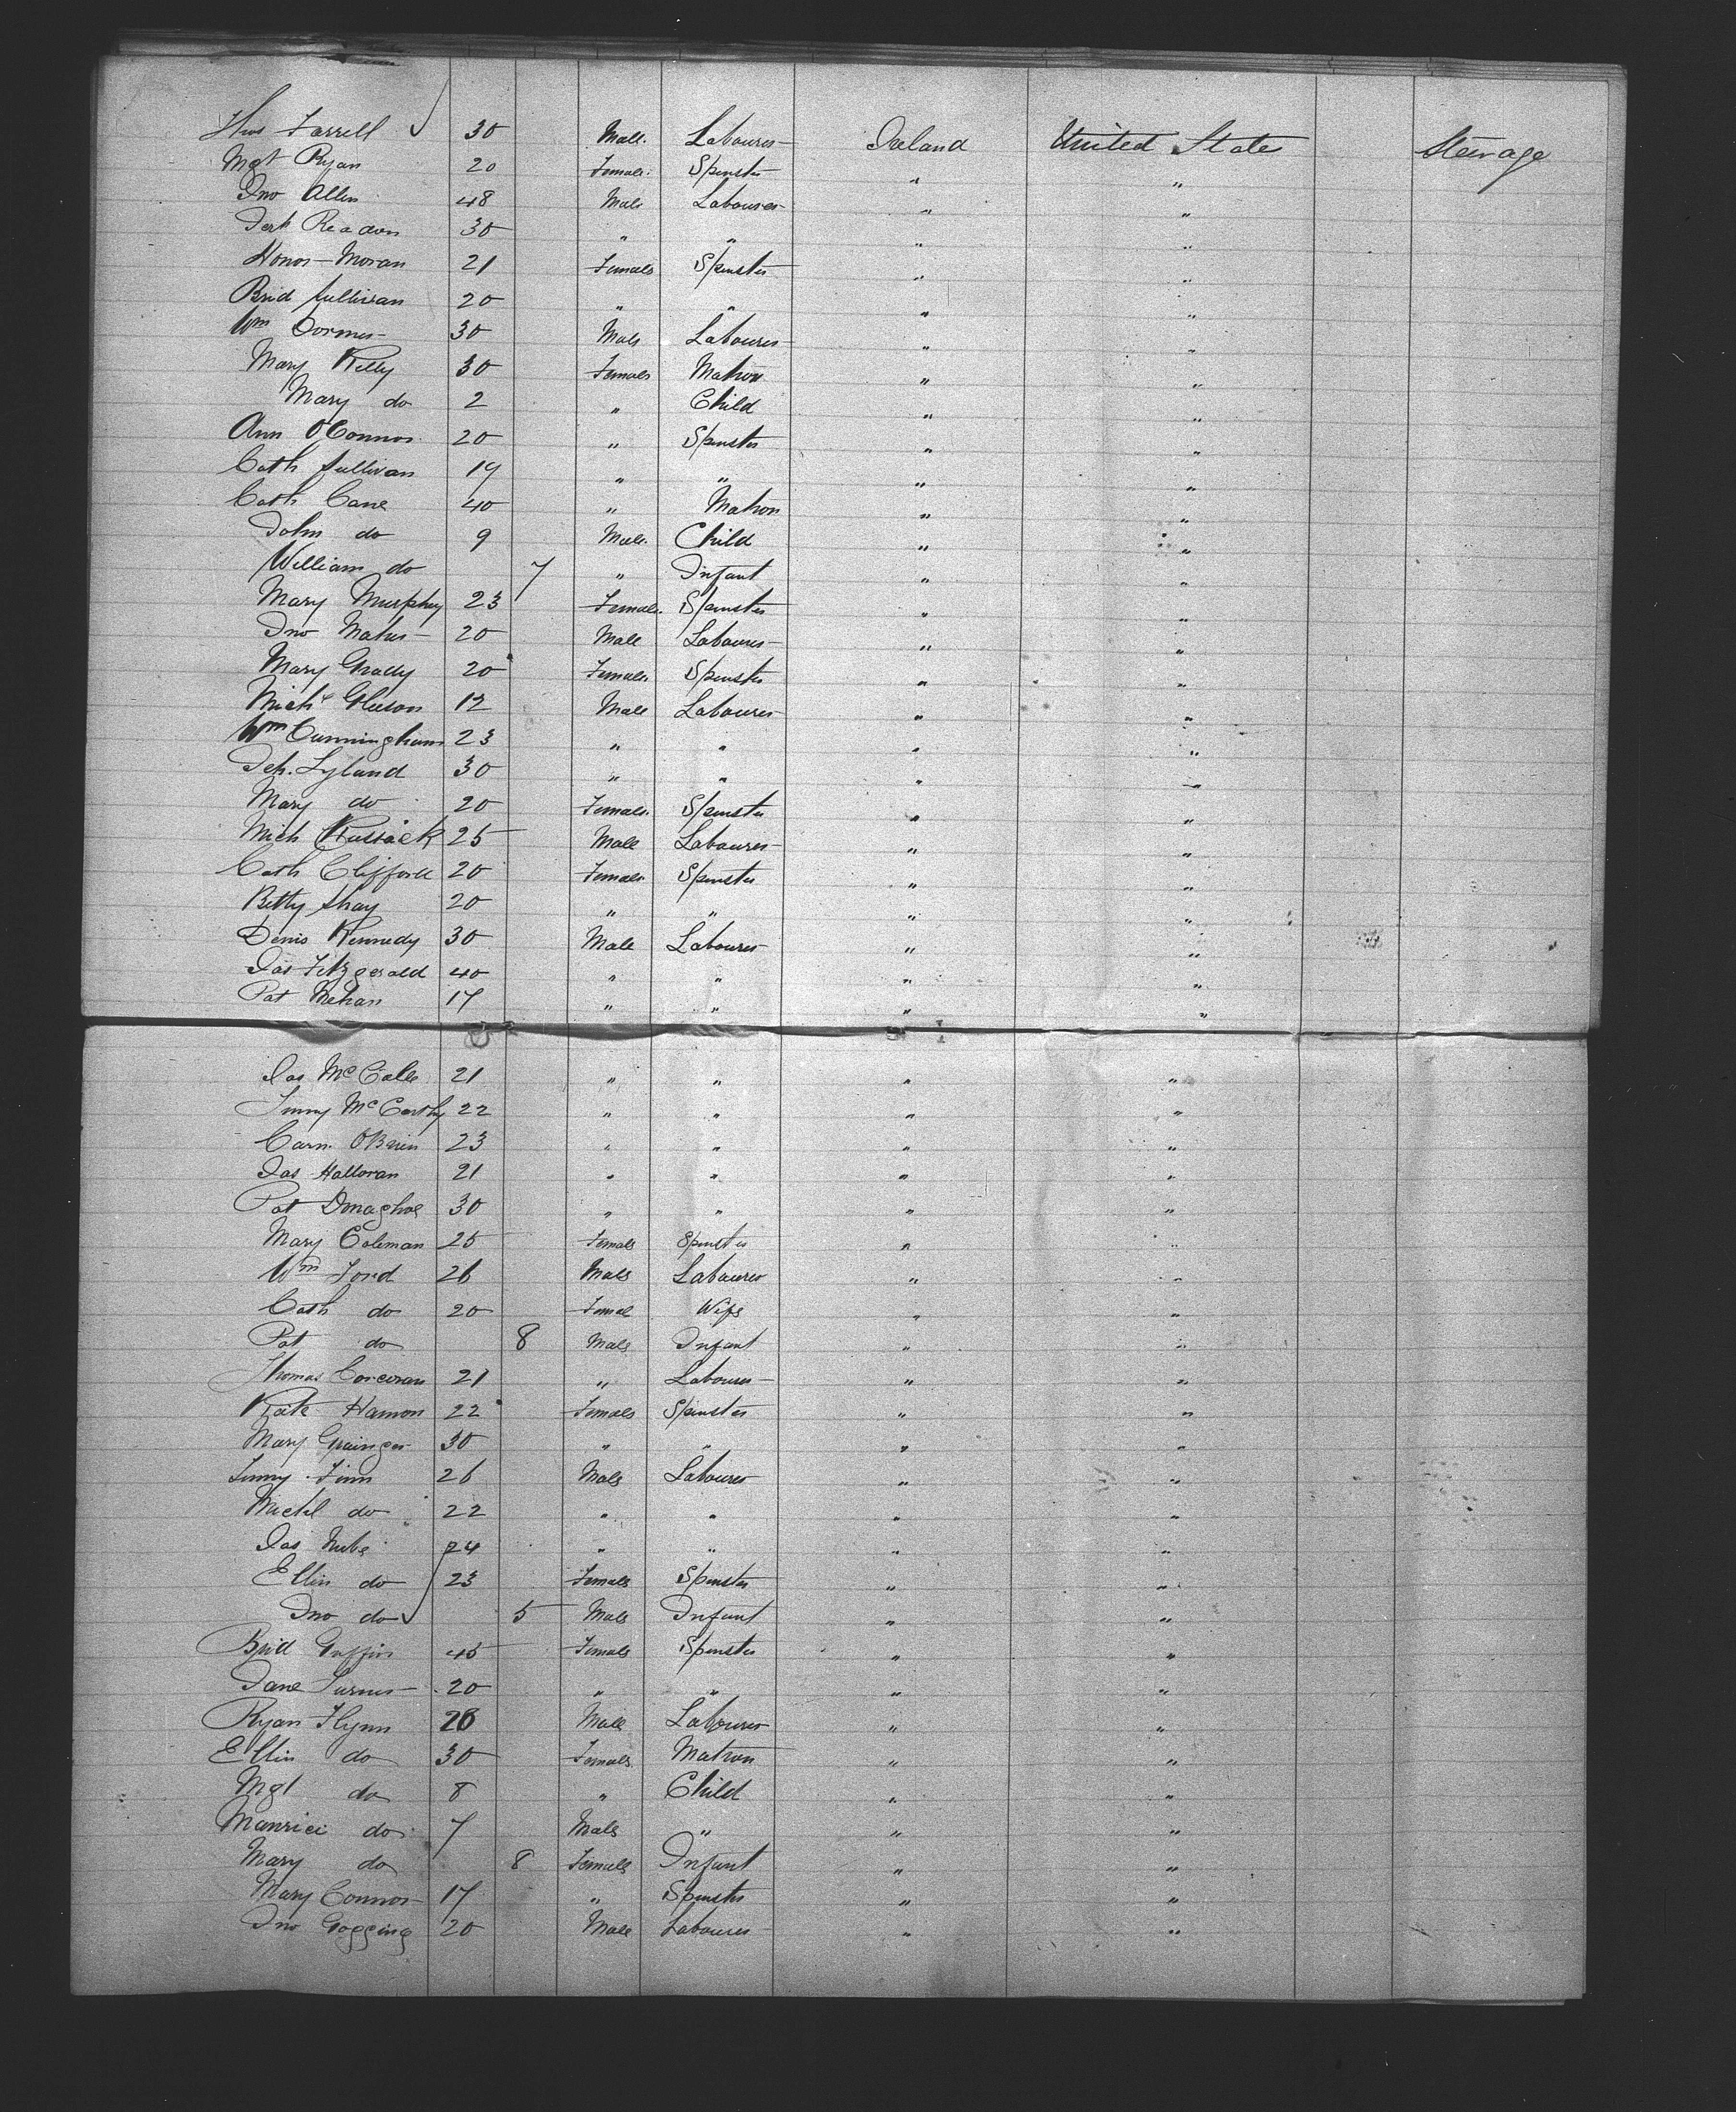 Thos Farrell 30 Male. Labourer Ireland United State Steerage
Mgt Ryan 20 Female. Spinster " "
Jno Allen 48 Male Labourer " "
Jerh Readon 30 " " " "
Honor Moran 21 Female Spinster " "
Brid Sullivan 20 " " " "
Wm Cormer 30 Male Labourer " "
Mary Kelly 30 Female Matron " "
Mary do 2 " Child " "
Ann O'Connor 20 " Spinster " "
Cath Sullivan 19 " " " "
Cath Cane 40 " Matron " "
John do 9 Male. Child " "
William do 7 " Infant " "
Mary Murphy 23 Female. Spinster " "
Jno Maher 20 Male Labourer " "
Mary Grady 20 Female. Spinster " "
Michl Gleeson 12 Male Labourer " "
Wm Cunningham 23 " " " "
Jeh. Lyland 30 " " " "
Mary do 20 Female. Spinster " "
Mich 25 Male Labourer " "
Cath Clifford 20 Female Spinster " "
Betty Shay 20 " " " "
Denis Kennedy 30 Male Labourer " "
Jas Fitzgerald 40 " " " "
Pat Mehan 17 " " " "
Jas McCalle 21 " " " "
Jimmy McCarthy 22 " " " "
Corn. O'Brien 23 " " " "
Jas Halloran 21 " " " "
Pat Donaghoe 30 " " " "
Mary Coleman 25 Female Spinster " "
Wm Ford 26 Male Labourer " "
Cath do 20 Femal Wife " "
Pat do 8 Male Infant " "
Thomas Corcoran 21 " Labourer " "
Kate Hamon 22 Female Spinster " "
Mary Grainger 30 " " " "
Jimmy Finn 26 Male Labourer " "
Michl do 22 " " " "
Jas 24 " " " "
Ellin do 23 Female Spinster " "
Jno do 5 Male Infant " "
Brid Griffin 45 Female Spinster " "
Jane Turner 20 " " " "
Ryan Flynn 28 Male Labourer " "
Ellin do 30 Female Matron " "
Mgt do 8 " Child " "
Maurici do 7 Male " " "
Mary do 8 Female Infant " "
Mary Connor 17 " Spinster " "
Jno Gogging 20 Male Labourer " "